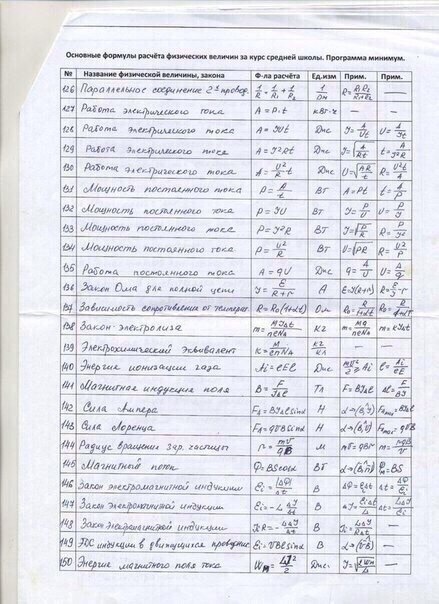 Основные формулы расчёта физических величин за курс средней школы. Программа минимум.
№ Название физической величины, закона Ф-ла расчёта Ед.изм Прим. Прим.
126 Параллельное соединение 2х провод. 1/R = 1/R₁ + 1/R₂ R = R₁R₂/R₁+R₂ —
127 Работа электрического тока A = P·t кВт·ч — —
128 Работа электрического тока A = IUt Дж I = A/Ut U = A/It
129 Работа электрического тока A = I²Rt Дж I = √A/Rt t = A/I²R
130 Работа электрического тока A = U²/R·t Дж U = √AR/t R = U²t/A
131 Мощность постоянного тока P = A/t Вт A = Pt t = A/P
132 Мощность постоянного тока P = IU Вт I = P/U U = P/I
133 Мощность постоянного тока P = I²R Вт I = √P/R R = P/I²
134 Мощность постоянного тока P = U²/R Вт U = √PR R = U²/P
135 Работа постоянного тока A = qU Дж q = A/U U = A/q
136 Закон Ома для полной цепи I = E/R+r А E = I(R+r) R = E/I - r
137 Зависимость сопротивления от температ. R = R₀(1+αt) Ом R₀ = R/1+αt
138 Закон электролиза m = MIΔt/enNA кг m = Mq/enNA m = kIΔt
139 Электрохимический эквивалент k = M/enNA кг/кл — —
140 Энергия ионизации газа Ai = eEl Дж mv²/2 ≥ Ai l = Ai/eE
141 Магнитная индукция поля B = F/IΔl Тл F = BIΔl Δl = F/BI
142 Сила Ампера FA = BIΔl sinα Н α → (B,I) FAmax = BIΔl
143 Сила Лоренца FЛ = qVB sinα Н α → (B,V) FЛmax = qVB
144 Радиус вращения зар. частицы r = mV/qB м mV = qBr m = rqB/V
145 Магнитный поток Ф = BS cosα Вб Фm = BS
146 Закон электромагнитной индукции Ei = |ΔФ/Δt| В ΔФ = EiΔt Δt = ΔФ/Ei
147 Закон электромагнитной индукции Ei = -L ΔI/Δt В
148 Закон электромагнитной индукции IiR = -L ΔI/Δt В —
149 ЭДС индукции в движущихся проводник Ei = VBl sinα В α → (V,B) —
150 Энергия магнитного поля тока Wм = LI²/2 Дж. I = √2Wм/L —